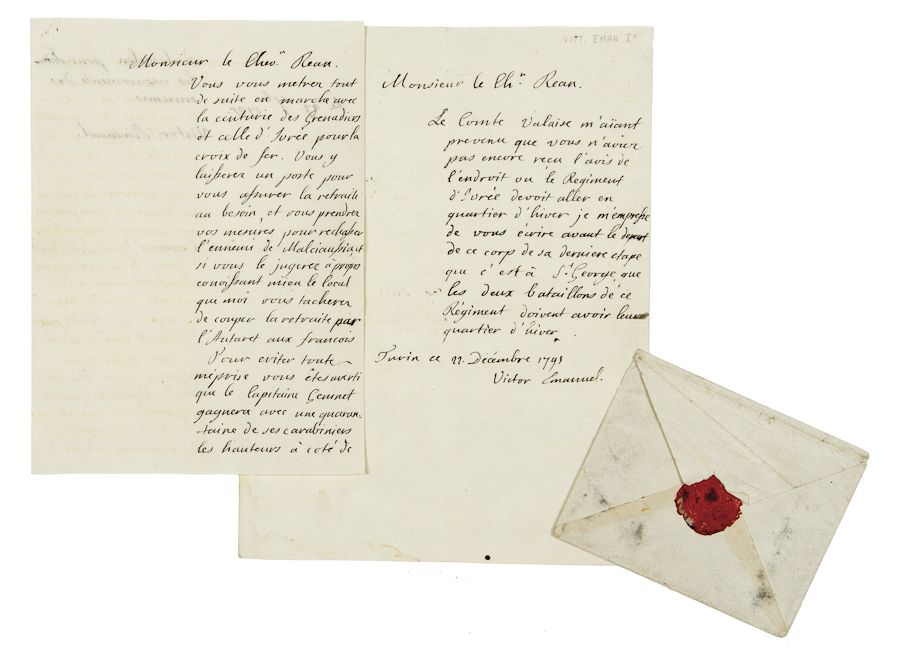 Monsieur le Chev.r Rean.
Vous vous metrez tout
de suite en marche avec
la centurie des Grenadiers
et celle d'Ivrée pour la
croix de fer. Vous y
laisserez un poste pour
vous assurer la retraite
au besoin, et vous prendrez
vos mesures pour rechasser
l'ennemi de Malciaussia, et
si vous le jugerez à propos
conoissant mieu le local
que moi vous tacherez
de couper la retraite par
l'Autaret aux francois
Pour eviter toute
méprise vous êtes averti
que le Capitaine
gagnera avec une quaran-
-taine de ses carabiniers
les hauteurs à coté de
VITT. EMAN. I°
Monsieur le Ch.r Rean.
Le Comte Valaise m'aïant
prevenu que vous n'aviez
pas encore recu l'avis de
l'endroit ou le Regiment
d'Ivrée devoit aller en
quartier d'hiver je m'empresse
de vous écrire avant le depart
de ce corps de sa derniere etape
que c'est à St. George que
les deux bataillons de ce
Régiment doivent avoir leur
quartier d'hiver.
Turin ce 22. Décembre 1795
Victor Emanuel.